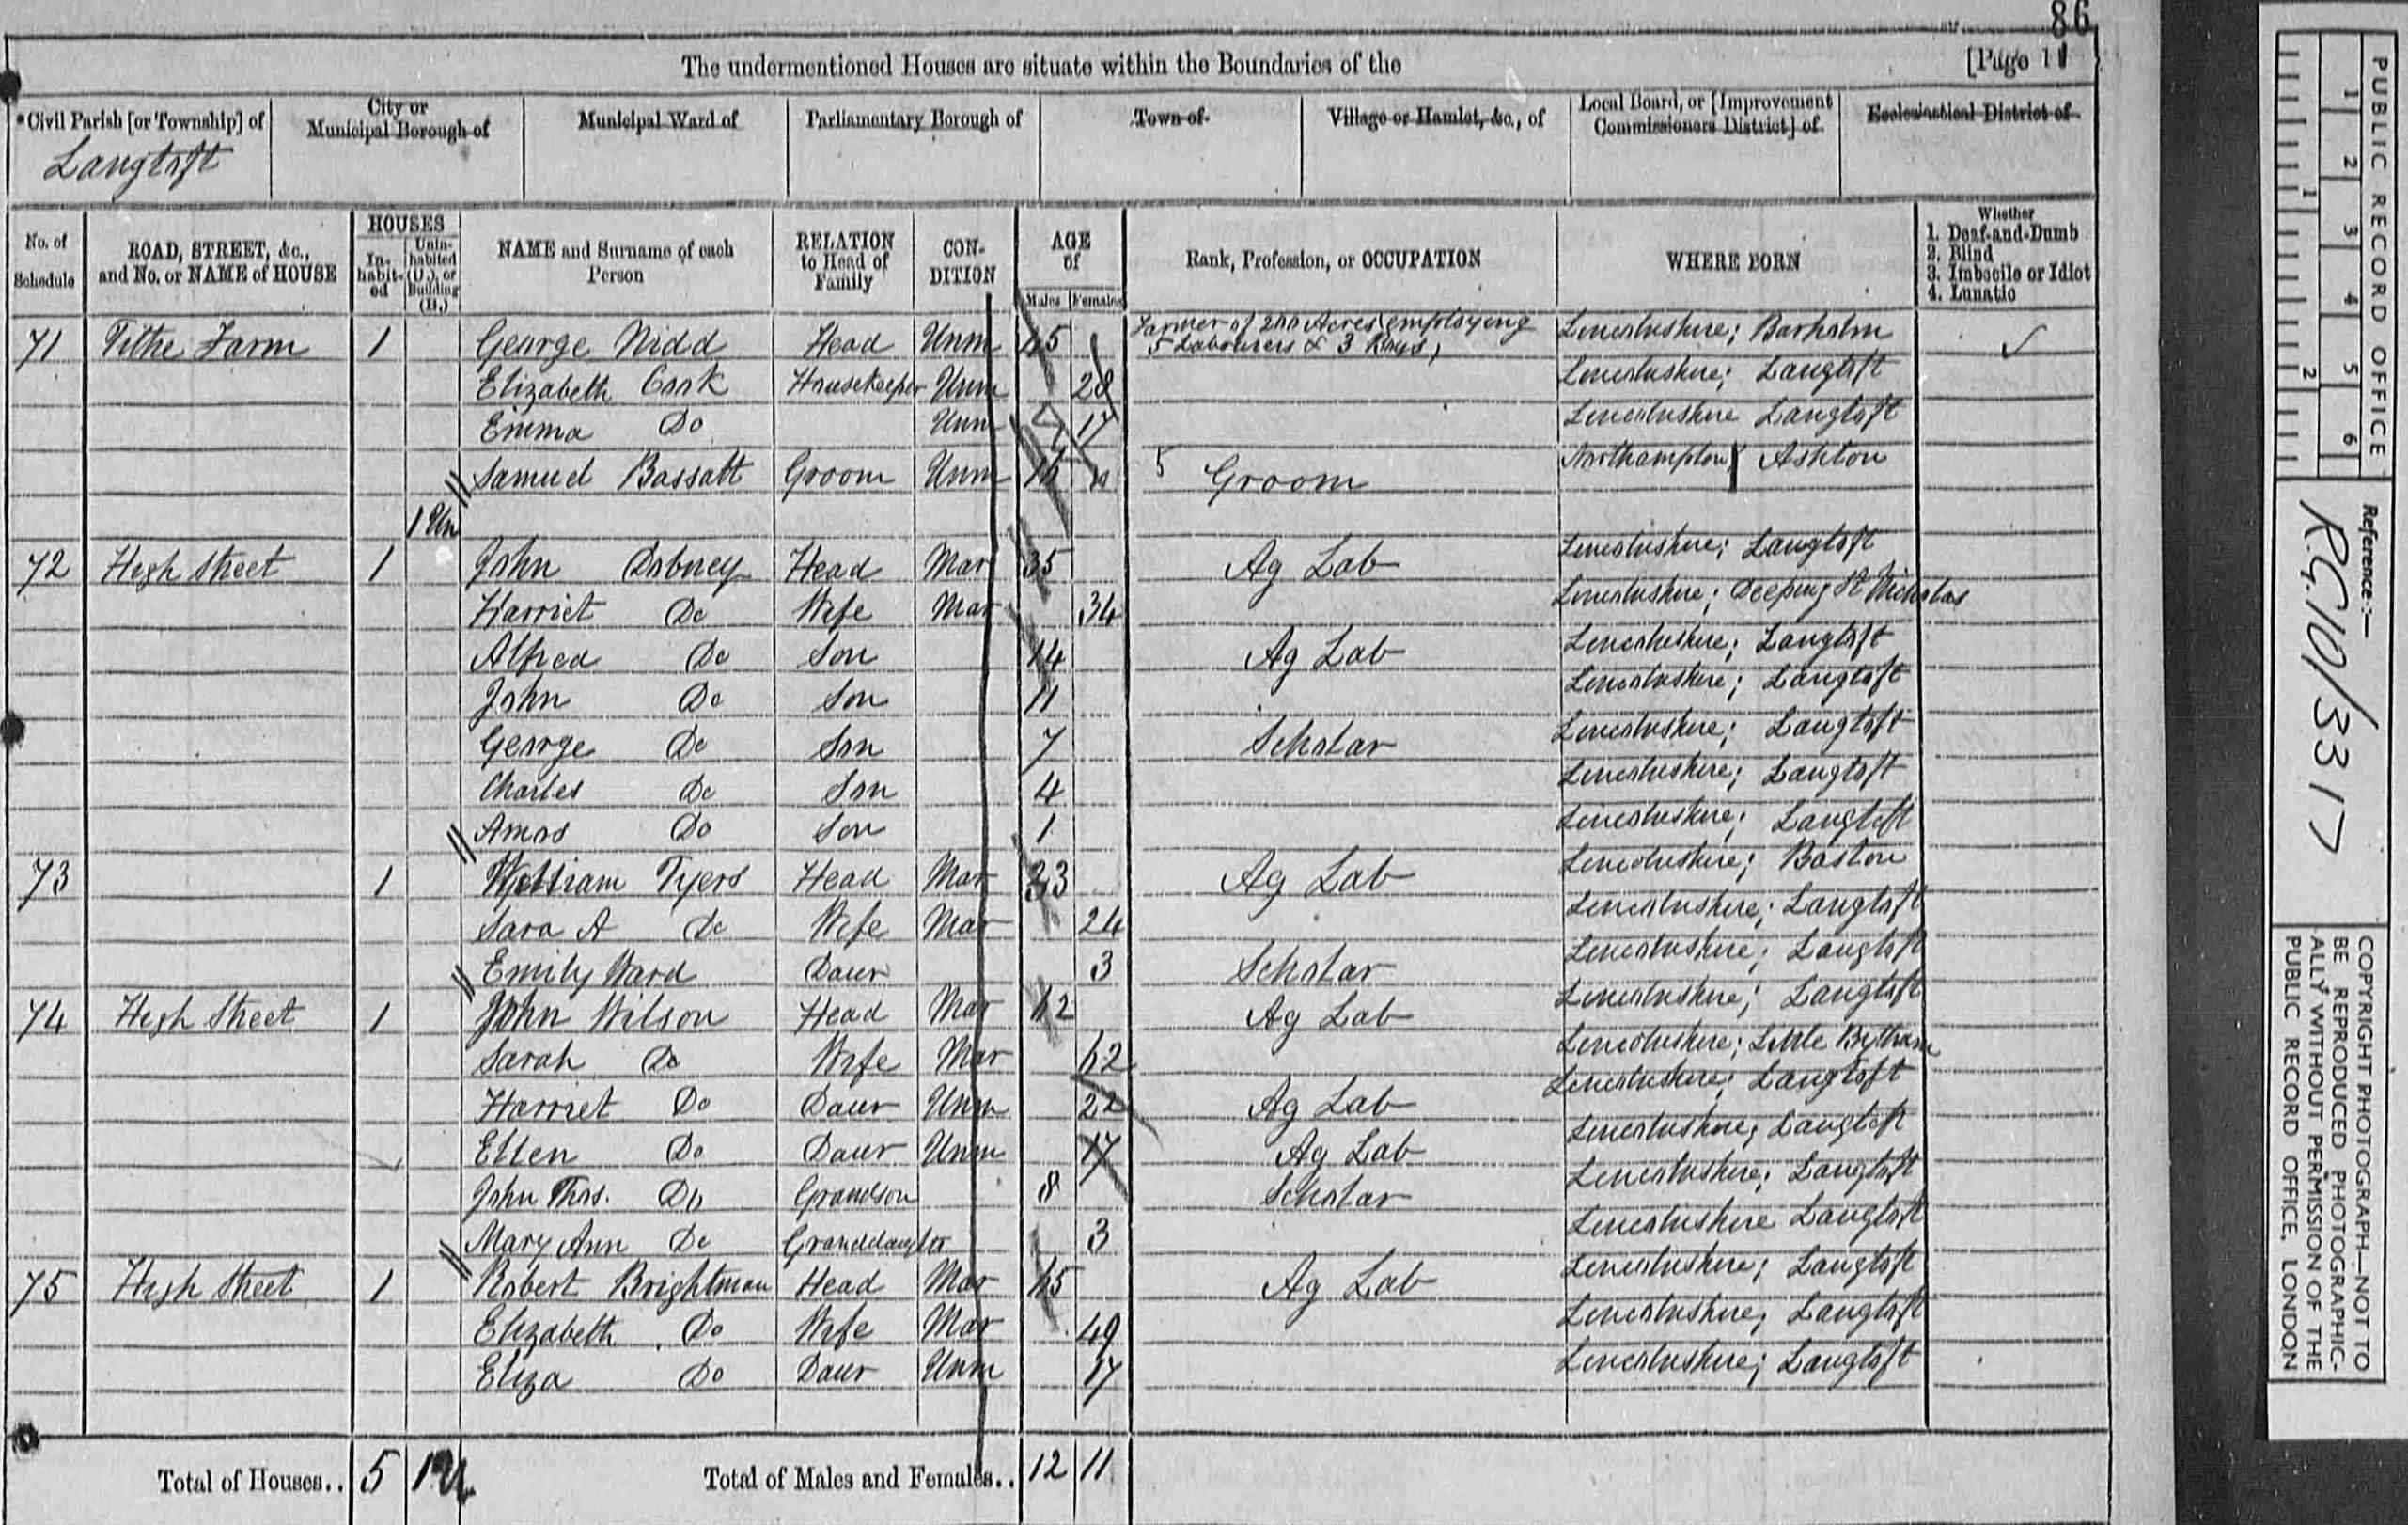 86
The undermentioned Houses are situate within the Boundaries of the [Page 11
*Civil Parish [or Township] of City or Municipal Borough of Municipal Ward of Parliamentary Borough of Town of Village or Hamlet, &c., of Local Board, or [Improvement Commissioners District] of Ecclesiastical District of
Langtoft
No. of Schedule ROAD, STREET, &c., and No. or NAME of HOUSE HOUSES In-habit-ed Unin-habited (U.), or Building (B.) NAME and Surname of each Person RELATION to Head of Family CON-DITION AGE of Males Females Rank, Profession, or OCCUPATION WHERE BORN Whether 1. Deaf-and-Dumb 2. Blind 3. Imbecile or Idiot 4. Lunatic
71 Tithe Farm 1 George Nidd Head Unm 45 Farmer of 200 Acres employing 5 Labourers & 3 Boys; Lincolnshire; Barholm
Elizabeth Cook Housekeeper Unm 28 Lincolnshire; Langtoft
Emma Do Unm 17 Lincolnshire Langtoft
Samuel Bassatt Groom Unm 5 Groom Northampton; Ashton
1 Un
72 High Street 1 John Dobney Head Mar 35 Ag Lab Lincolnshire; Langtoft
Harriet Do Wife Mar 34 Lincolnshire; Deeping St Nicholas
Alfred Do Son 14 Ag Lab Lincolnshire; Langtoft
John Do Son 11 Lincolnshire; Langtoft
George Do Son 7 Scholar Lincolnshire; Langtoft
Charles Do Son 4 Lincolnshire; Langtoft
Amos Do Son 1 Lincolnshire; Langtoft
73 1 William Tyers Head Mar 33 Ag Lab Lincolnshire; Baston
Sara A Do Wife Mar 24 Lincolnshire; Langtoft
Emily Ward Daur 3 Scholar Lincolnshire; Langtoft
74 High Street 1 John Wilson Head Mar 62 Ag Lab Lincolnshire; Langtoft
Sarah Do Wife Mar 62 Lincolnshire; Little Bytham
Harriet Do Daur Unm 22 Ag Lab Lincolnshire; Langtoft
Ellen Do Daur Unm 17 Ag Lab Lincolnshire; Langtoft
John Thos. Do Grandson 8 Scholar Lincolnshire; Langtoft
Mary Ann Do Granddaughter 3 Lincolnshire Langtoft
75 High Street 1 Robert Brightman Head Mar Ag Lab Lincolnshire; Langtoft
Elizabeth Do Wife Mar 49 Lincolnshire; Langtoft
Eliza Do Daur Unm 17 Lincolnshire; Langtoft
Total of Houses.. 5 1 U Total of Males and Females.. 12 11
PUBLIC RECORD OFFICE
1 2 3 4 5 6
1 2
Reference:—
R.G. 10/3317
COPYRIGHT PHOTOGRAPH—NOT TO
BE REPRODUCED PHOTOGRAPHIC-
ALLY WITHOUT PERMISSION OF THE
PUBLIC RECORD OFFICE, LONDON